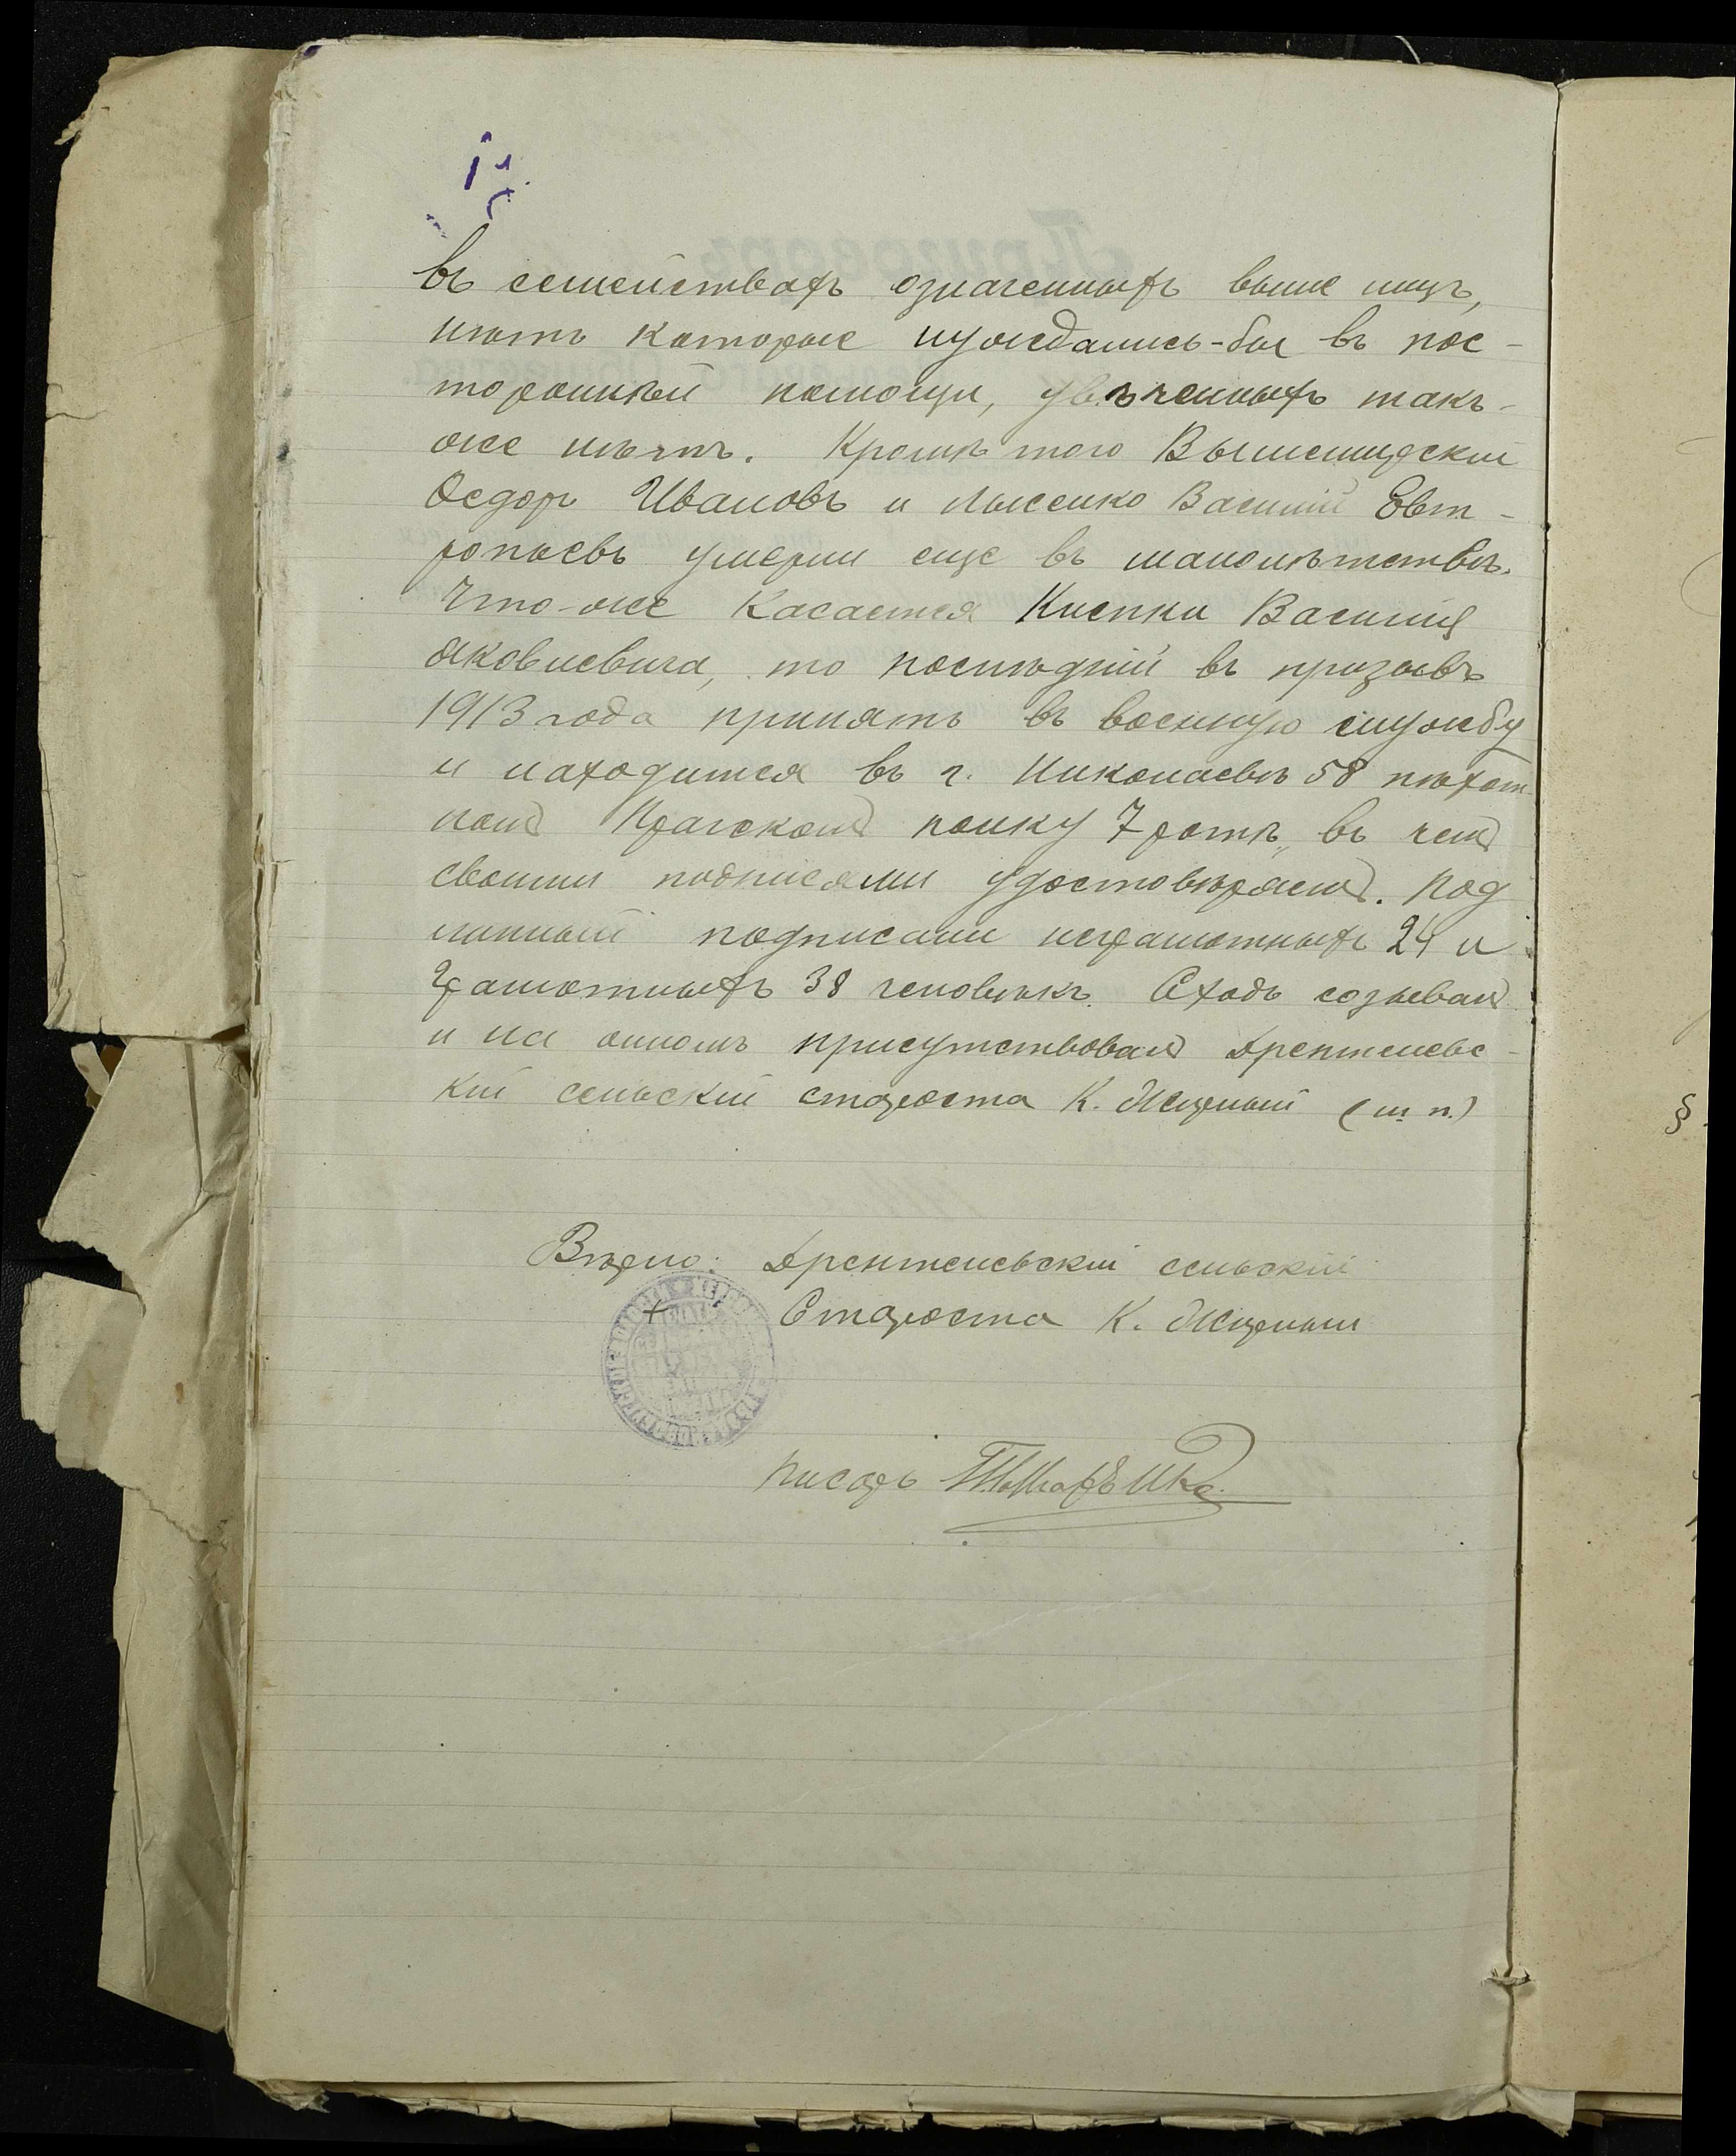 въ семействахъ означенныхъ выше лицъ,
нѣтъ которые нуждались-бы въ пос-
торонней помощи, увѣченныхъ такъ-
же нѣтъ. Кромѣ того Вышемирскій
Ѳедоръ Ивановъ и Лысенко Василій Евт-
ропьевъ умерли еще въ малолѣтствѣ.
Что-же касается Киспки Василія
Яковлевича, то послѣдній въ призывъ
1913 года принятъ въ военную службу
и находится въ г. Николаевѣ 58 пѣхот-
номъ Прагскомъ полку 7 ротѣ, въ чемъ
своими подписями удостовѣряемъ. Под
линный подписали неграмотныхъ 24 и
грамотныхъ 38 человѣкъ. Сходъ созывалъ
и на ономъ присутствовалъ Дрентелевс-
кій сельскій староста К. (м. п.)
Вѣрно: Дрентельскій сельскій
Староста К.
Писарь
§